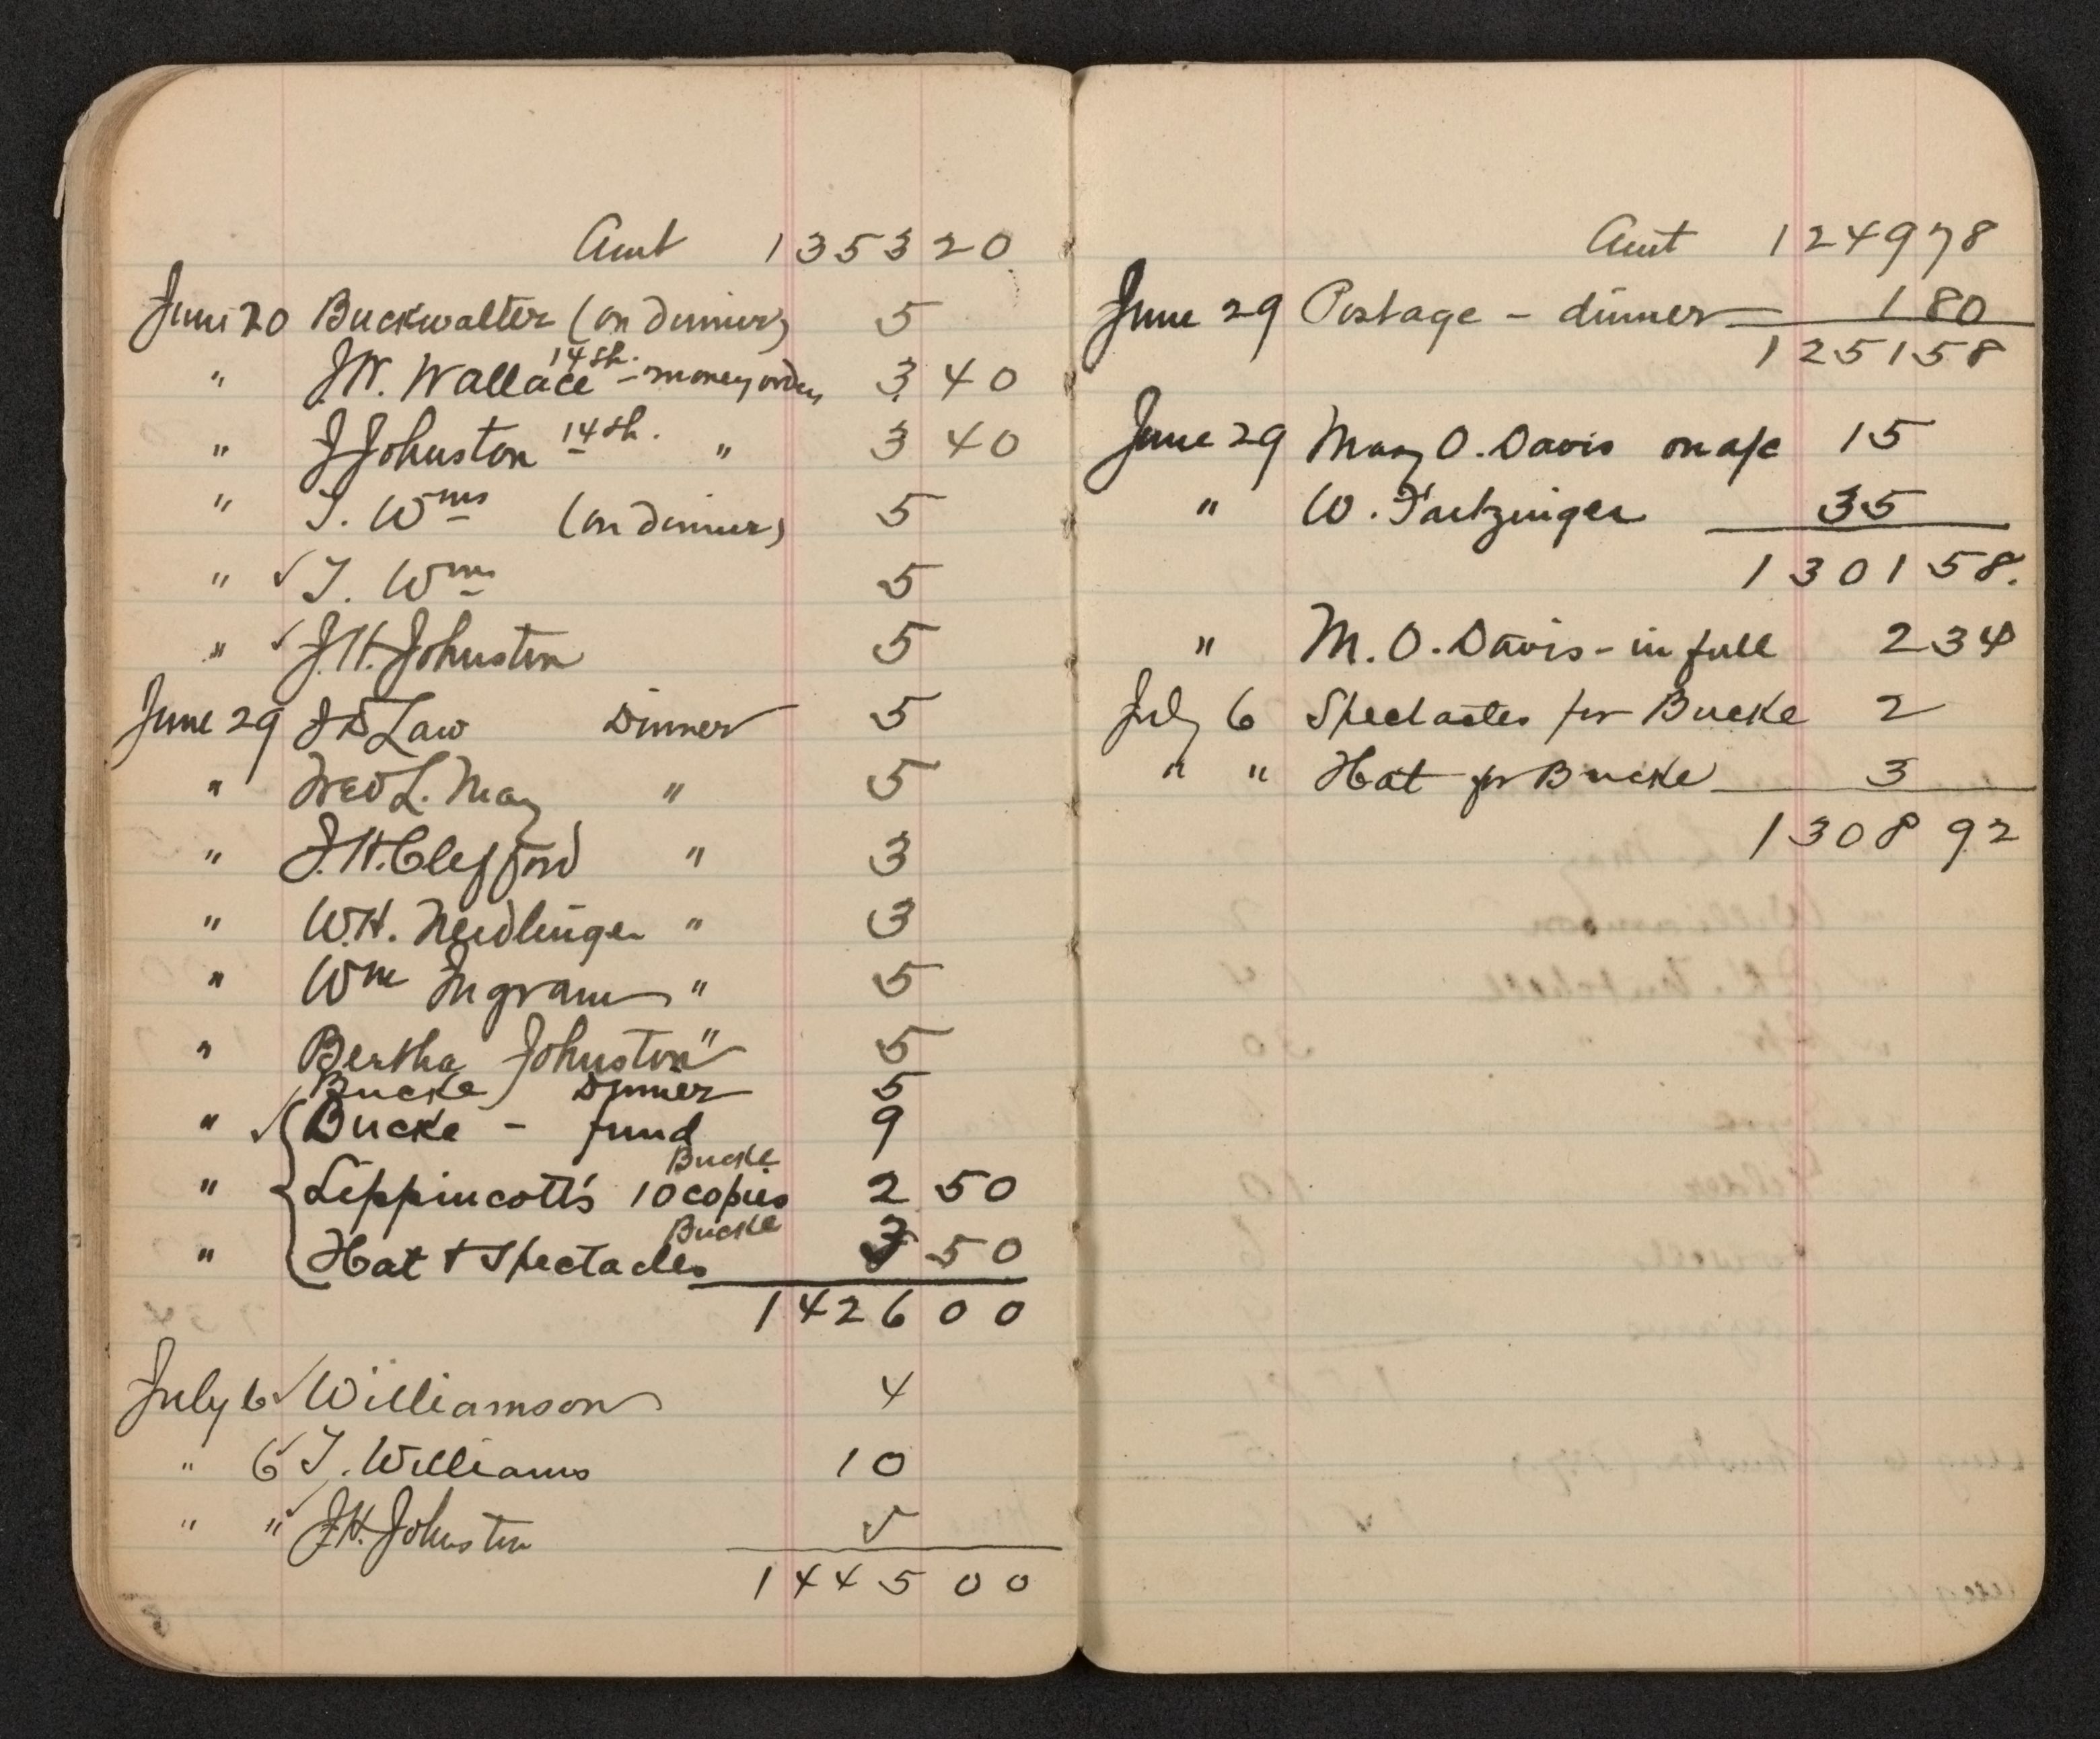 Amt 1353 20
June 20 Buckwalter (on dinner) 5
" J.W. Wallace 14sh. - money order 3 40
" J Johnston 14sh. " 3 40
" T. Wms (on dinner) 5
" ✓ T. Wms 5
" ✓ J.H. Johnston 5
June 29 J D Law Dinner 5
" Fred L. May " 5
" J.H. Clifford " 3
" W.H. Neidlinger " 3
" Wm Ingram " 5
" Bertha Johnston " 5
Bucke Dinner 5
" ✓ Bucke - fund 9
Bucke
" Lippincott's 10 copies 2 50
Bucke
" Hat + Spectacles 50
1426 00
July 6 ✓ Williamson 4
" 6 ✓ T. Williams 10
" " ✓ J.H. Johnston 5
1445 00
Amt 1249 78
June 29 Postage - dinner 1 80
1251 58
June 29 Mary O. Davis on a/c 15
" W. Fritzinger 35
1301 58.
" M. O. Davis - in full 2 34
July 6 Spectacles for Bucke 2
" " Hat for Bucke 3
1308 92